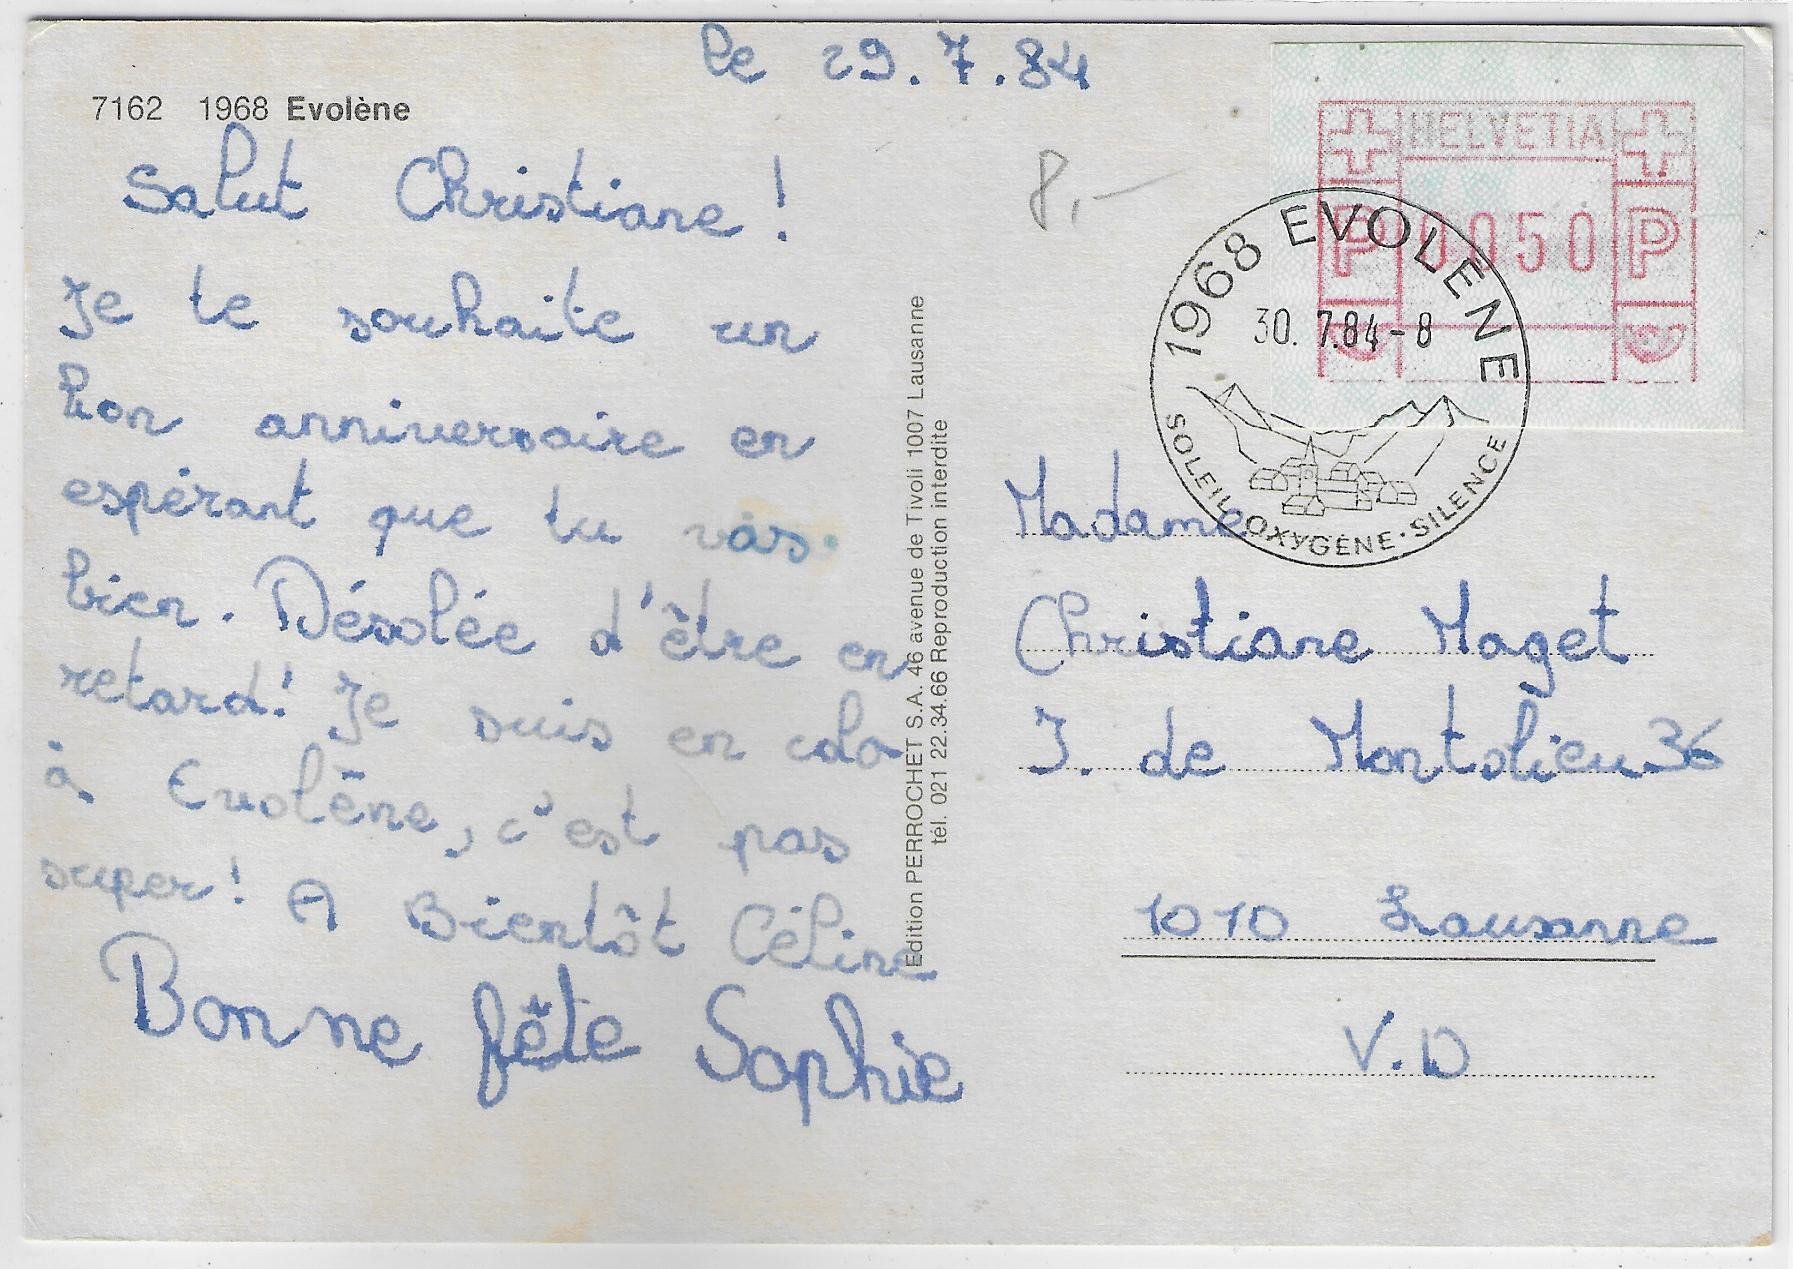 le 29.7.84
7162 1968 Evolène
Salut Christiane !
Je te souhaite un
bon anniversaire en
espérant que tu vas
bien. Désolée d'être en
retard! Je suis en colo
à Evolène, c'est pas
super! A Bientôt Céline
Bonne fête Sophie
Edition PERROCHET S.A. 46 avenue de Tivoli 1007 Lausanne
tél. 021 22.34.66 Reproduction interdite
8,-
HELVETIA
P 0050 P
1968 EVOLENE
30. 7.84-8
SOLEIL·OXYGENE·SILENCE
Madame
Christiane Maget
J. de Montolieu 36
1010 Lausanne
V.D